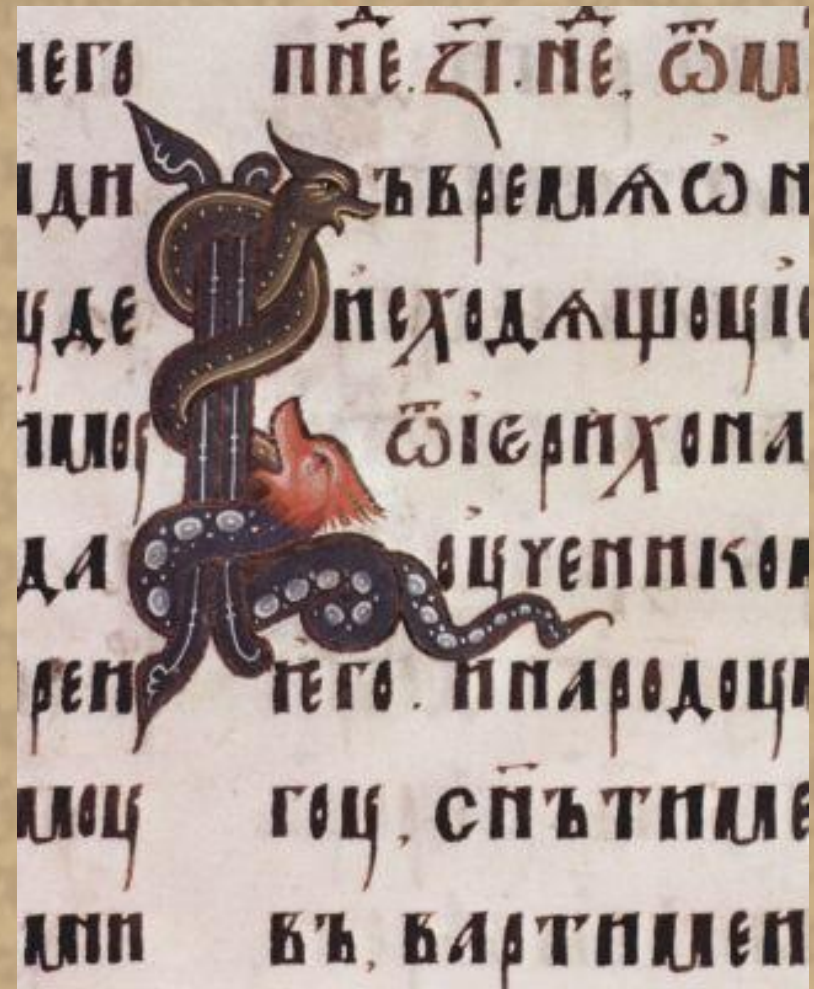 его
ди
уде
имоу
да
рен
моу
мни
пн҃ⷣе. з҃і. нⷣе. ѿ м
Въ времѧ ѡн
исходѧшоу іс
ѿ іерихона
оученико
него. и народоу
гоу, сн҃ъ тиме
въ, вартимеи